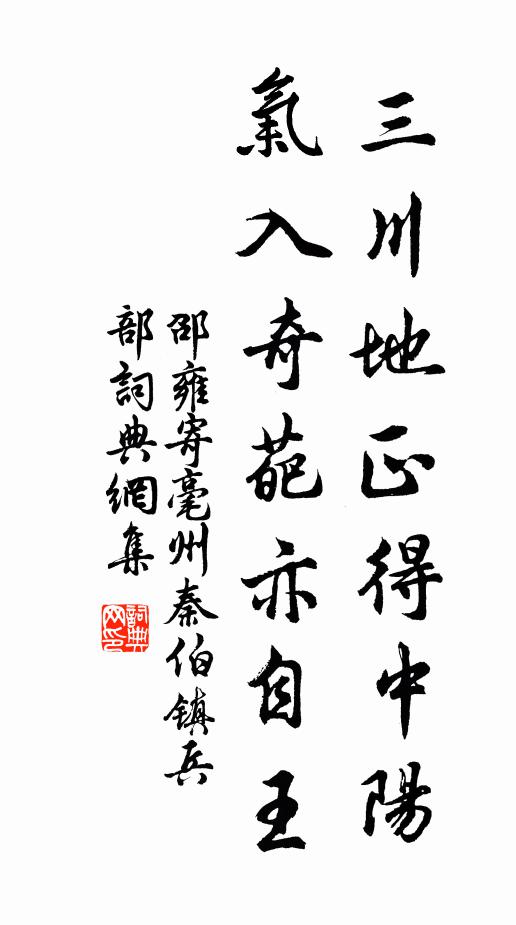 三川地正得中陽
氣入奇葩亦自王
邵雍寄毫州秦伯鎮兵
部詞典網集
詞典
网印